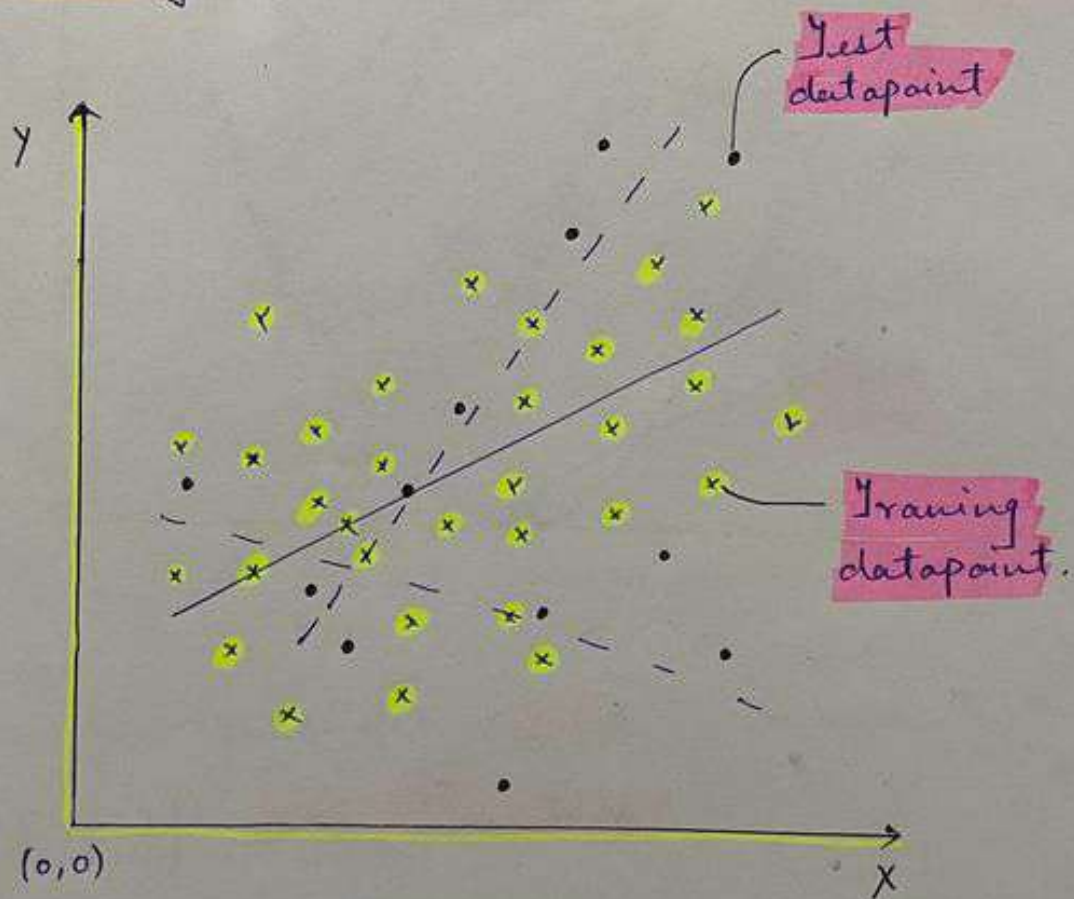 Test
datapoint
Y
Traning
datapoint.
(0,0)
X